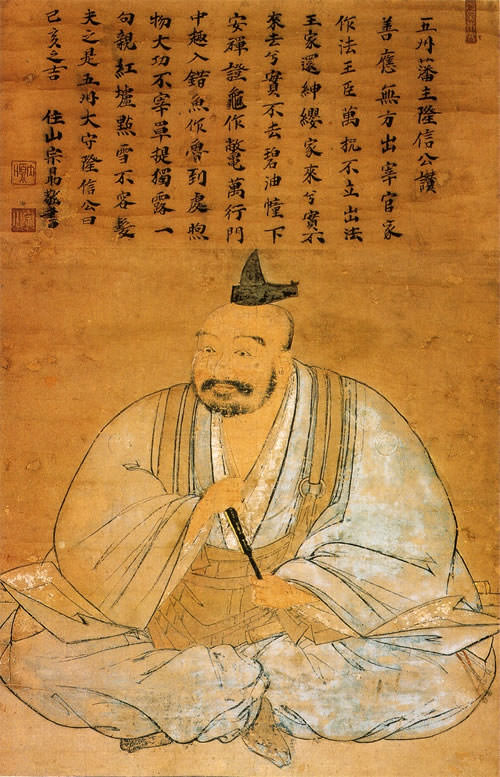 五州藩主隆信公讚
善應無方出宰官家
作法王臣萬机不立出法
王家還紳纓家來兮實不
來去兮實不去碧油幢下
安禪證龜作鼈萬行門
中趣入錯魚作魯到處煦
物大功不宰單提獨露一
句親紅爐點雪不容髮
夫之是五州大守隆信公曰
己亥之吉 住山宗 書